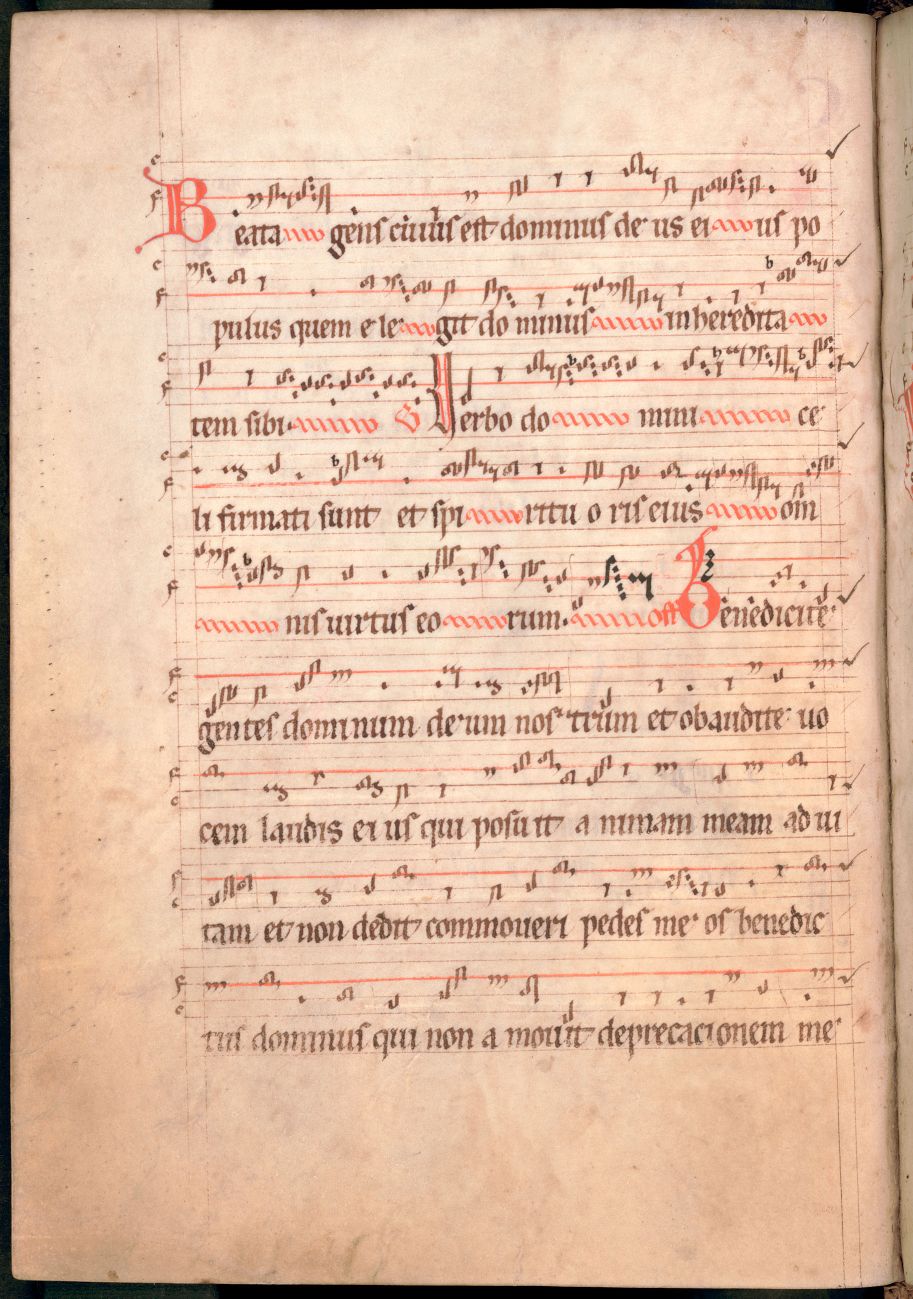 Beata gens cuius est dominus de us ei us po
pulus quem e le git do minus in heredita
tem sibi. V Verbo do mini ce
li firmati sunt et spi ritu o ris eius om
nis uirtus eo rum. off Benedicite
gentes dominum de um nos trum et obaudite uo
cem laudis ei us qui posu it a nimam meam ad ui
tam et non dedit commoueri pedes me os benedic
tus dominus qui non a mouit deprecacionem me